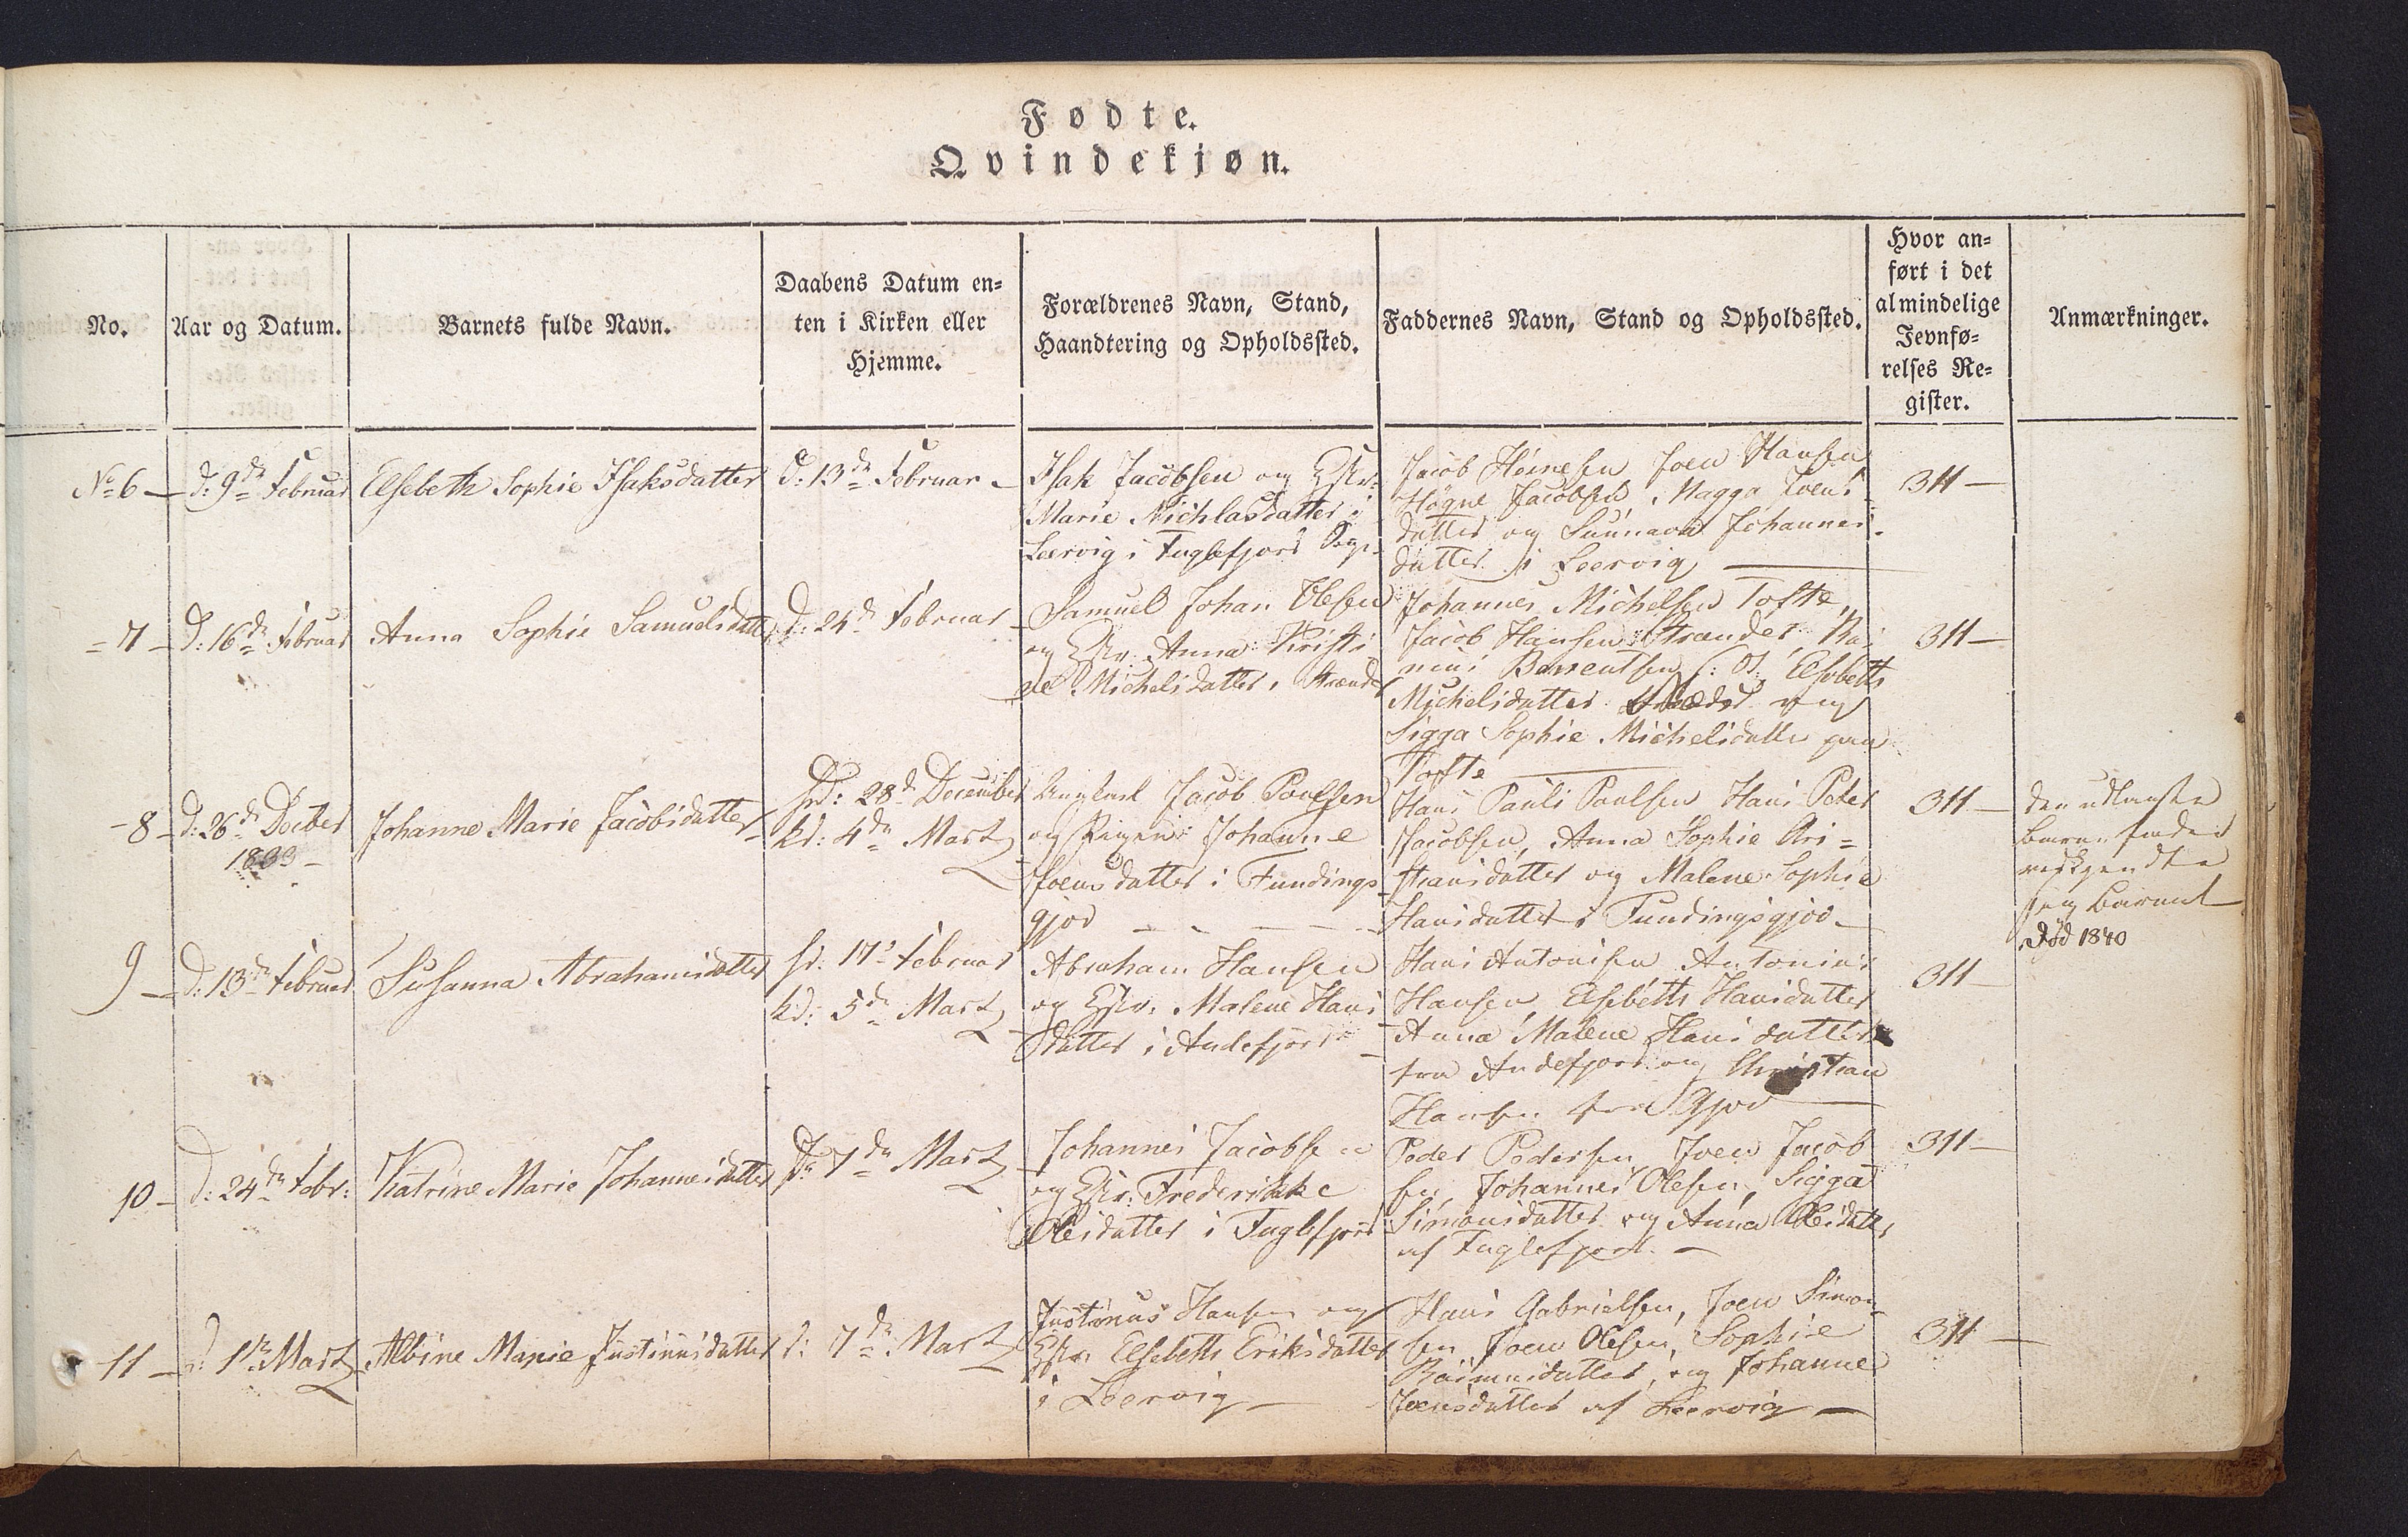 Fødte.
Qvindekjøn.
No.
Aar og Datum.
Barnets fulde Navn.
Daabens Datum en-
ten i Kirken eller
Hjemme.
Forældrenes Navn, Stand,
Haandtering og Opholdssted.
Faddernes Navn, Stand og Opholdssted.
Hvor an-
ført i det
almindelige
Jevnfø-
relses Re-
gister.
Anmærkninger.
No 6 —
d: 9de Februar
Elsebeth Sophie Isaksdatter
d: 13de Februar –
Isak Jacobsen og Hstr:
Marie Nichlasdatter i
Leervig i Fuglefjord Sogn
Jacob Høinesen Joen Hansen
Høgne Jacobsen, Magga Joens
datter og Sunnava Johannes-
datter i Leervig —
311 —
= 7 –
d: 16de Februar
Anna Sophie Samuelsdatter
d: 24de Februar –
Samuel Johan Olesen
og Hstr: Anna Kristi
ne Michelsdatter, Strænder
Johannes Michelsen Tofte,
Jacob Hansen Strænder,
Berentsen Elsebeth
Michelsdatter og
Sigga Sophie Michelsdatter paa
Tofte —
311 —
– 8 –
d: 26de Decber
1833 –
Johanne Marie Jacobsdatter
hd: 28de December
kd: 4de Martz
Ungkarl Jacob Poulsen
og Pigen Johanne
Joensdatter i Fundings
gjov – – –
Hans Pauli Poulsen Hans Peter
Jacobsen, Anna Sophie Kri=
stiansdatter og Malene Sophie
Hansdatter i Fundingsgjov –
311 —
den udlagte
Barnefader
vedkjendte
sig Barnet –
Død 1840
9 —
d: 13de Februar
Susanna Abrahamsdatter
hd: 17de Februar
kd: 5de Martz
Abraham Hansen
og Hstr: Malene Hans
datter i Andefjord –
Hans Antonisen Antonius
Hansen, Elsebeth Hansdatter
Anna Malene Hansdatter
fra Andefjord og Christian
Hansen fra Gjov —
311 –
10 –
d: 24de Febr:
Katrine Marie Johannesdatter
d: 7de Martz
Johannes Jacobsen
og Hstr: Frederikke
Olesdatter i Fuglefjord
Peder Pedersen Joen Jacob
sen, Johannes Olesen, Sigga
Simonsdatter og Anna Olesdatter
af Fuglefjord. –
311 –
11 –
d: 1ste Martz
Albine Marie Justinusdatter
d: 7de Martz
Justinus Hansen og
Hstr: Elsebeth Eriksdatter
i Leervig –
Hans Gabrielsen, Joen Simon-
sen Joen Olesen, Sophie
Rasmusdatter, og Johanne
Joensdatter af Leervig —
311 —